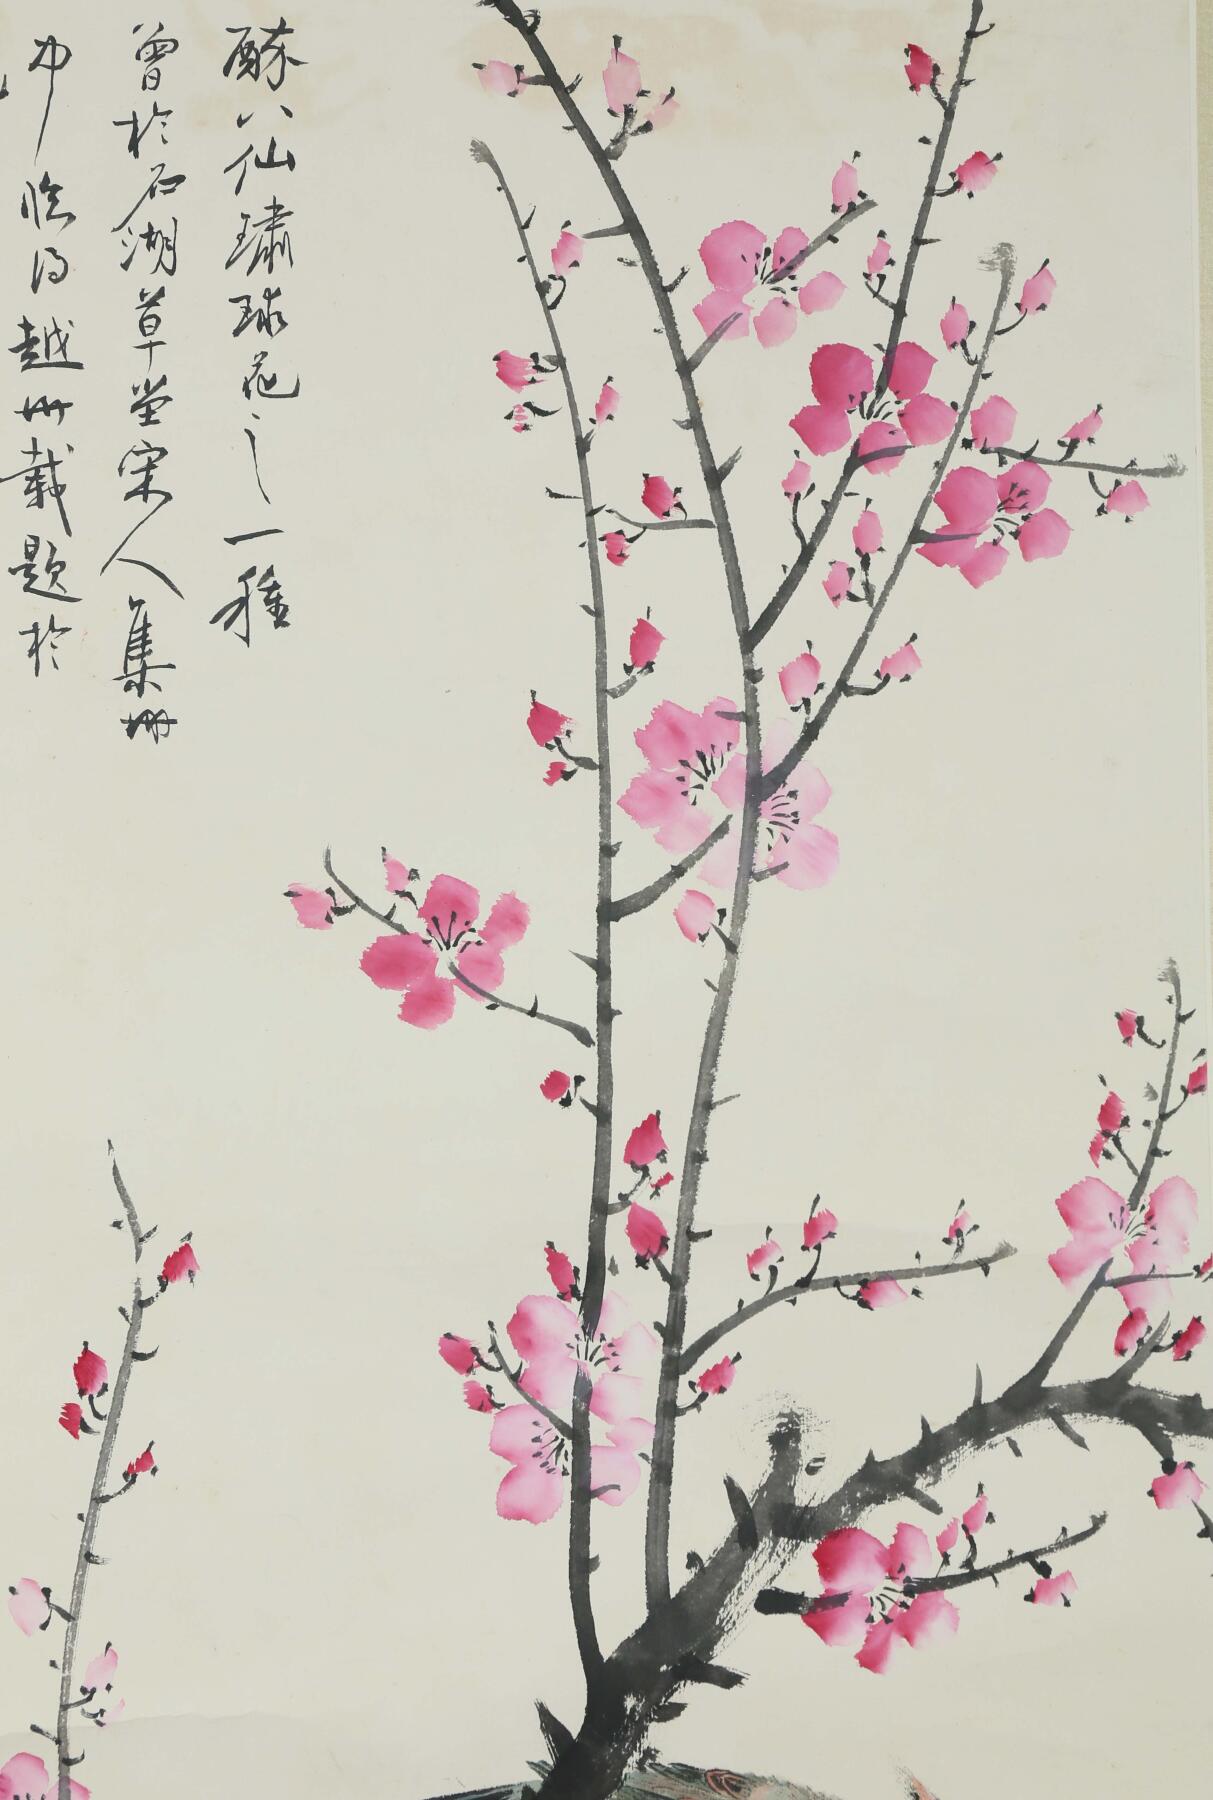 酥八仙璛球花之一種
曾於石湖草堂宋人集册
中臨得越册載題於